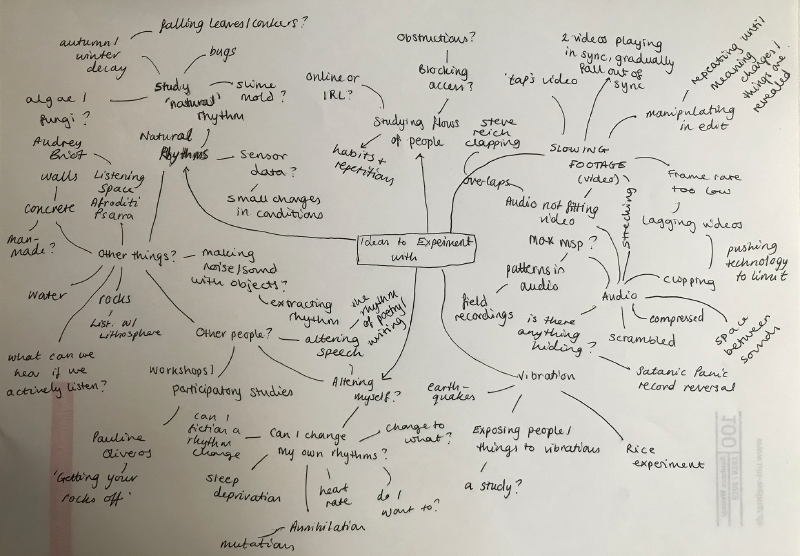 falling leaves/conkers?
autumn/
winter
decay
bugs
Study
'natural'
rhythm
slime
mold?
algae/
fungi?
Natural
Rhythms
Sensor
data?
small changes
in conditions
Audrey
Briot
walls
Listening
space
Afroditi
Psarra
concrete
man-
made?
Other things?
making
noise/sound
with objects?
extracting
rhythm
water
rocks
List. w/
Lithosphere
what can we
hear if we
actively listen?
Obstructions?
Blocking
access?
Online or
IRL?
Studying flows
of people
habits +
repetitions
steve
reich
clapping
overlaps
'taps video
2 videos playing
in sync, gradually
fall out of
sync
repeating until
meaning
changes/
things are
revealed
manipulating
in edit
SLOWING
FOOTAGE
(video)
Frame rate
too low
lagging videos
pushing
technology
to limit
clipping
streching
Audio not fitting
video
Max msp?
patterns in
audio
field
recordings
Audio
compressed
scrambled
space
between
sounds
is there
anything
hiding?
Satanic Panic
record reversal
Ideas to Experiment
with
Other people?
altering
speech
the
rhythm
of poetry/
writing
Altering
myself?
workshops/
participatory studies
Pauline
Oliveros
'Getting your
rocks off'
can I
fiction a
rhythm
change
Can I change
my own rhythms?
change to
what?
do I
want to?
heart
rate
sleep
deprivation
Annihilation
mutations
earth-
quakes
Vibration
Exposing people/
things to vibrations
a study?
Rice
experiment
100